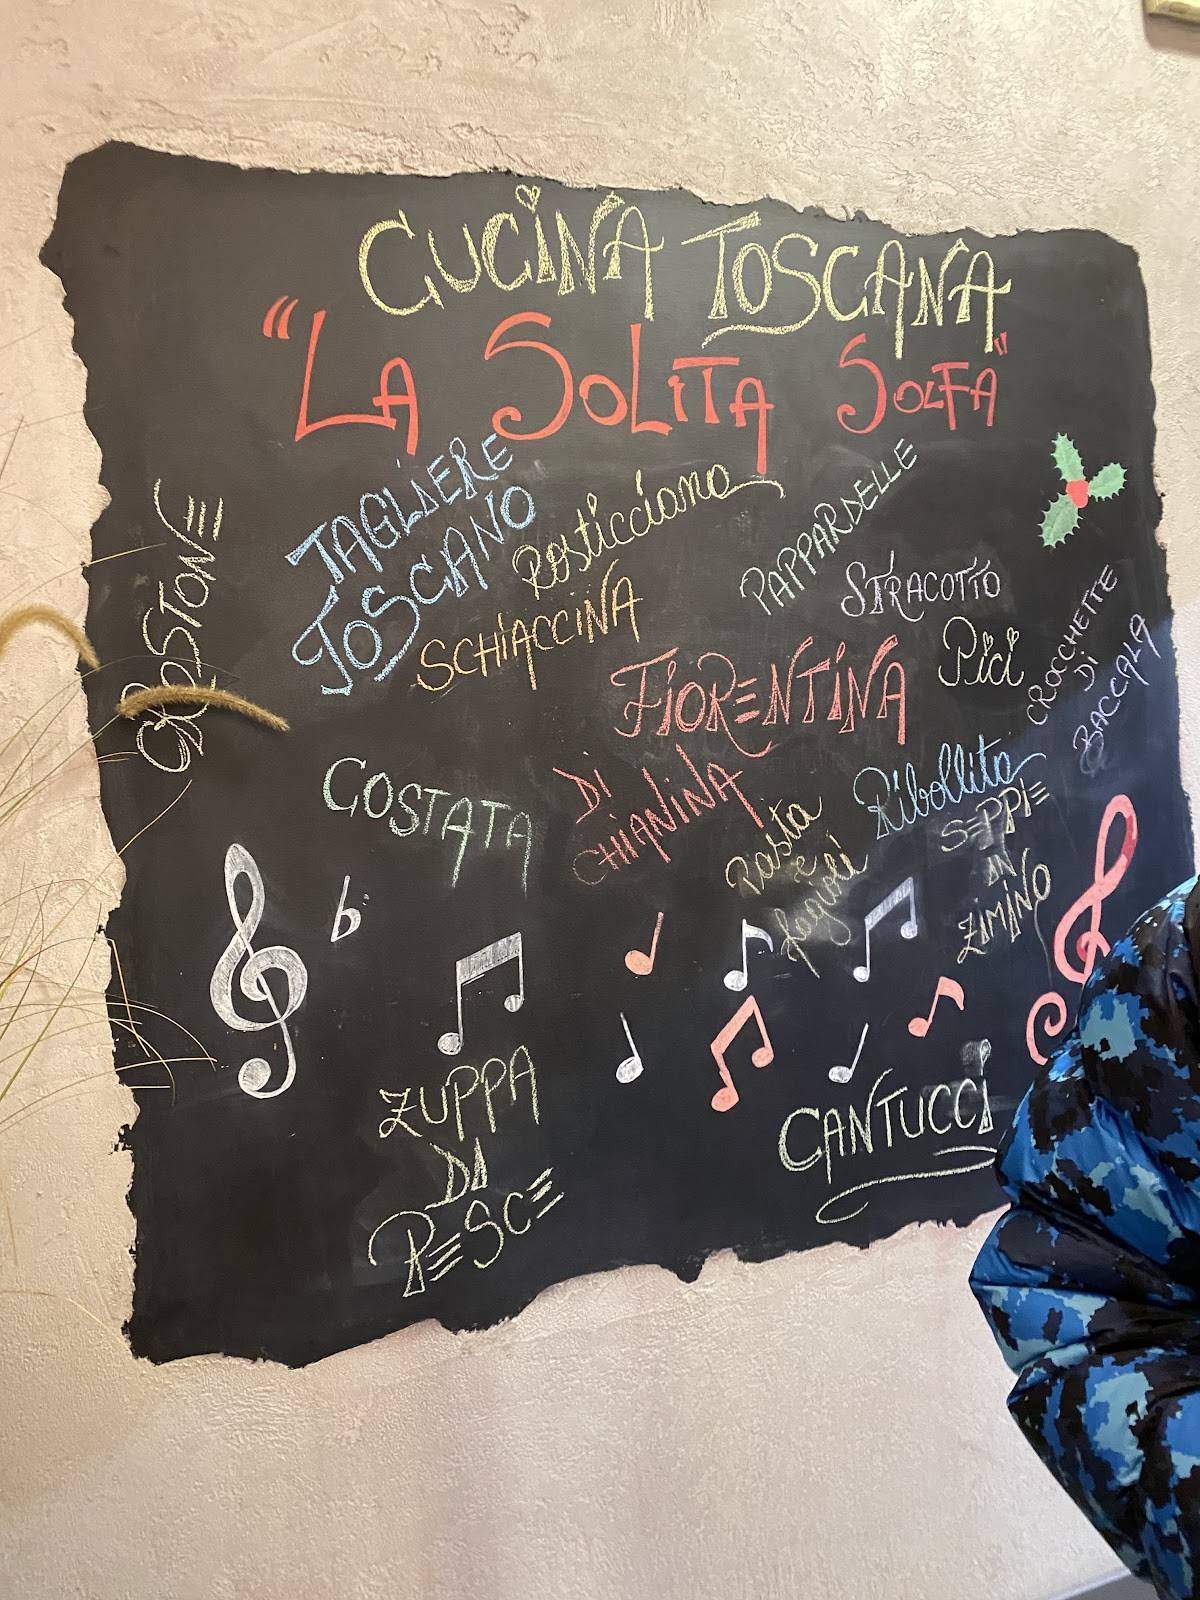 CUCINA TOSCANA
"LA SOLITA SOLFA"
TAGLIERE
TOSCANO
Rosticciana
SCHIACCINA
PAPPARDELLE
STRACOTTO
Pici
CROCCHETTE
DI
BACCALA
CROSTONE
FIORENTINA
DI
CHIANINA
COSTATA
Ribollita
Pasta
e
fagioli
SEPPIE
IN
ZIMINO
ZUPPA
DI
PESCE
CANTUCCI